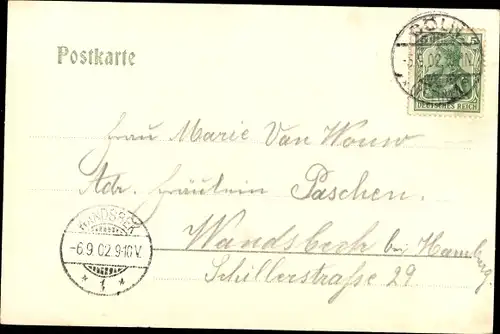 Postkarte
CÖLN
5.9.02
5
DEUTSCHES REICH
Frau Marie Van Wouw
Adr. Fräulein Paschen.
Wandsbeck bei Hamburg.
Schillerstraße 29
WANDSBEK
-6.9.02 9-10V.
* 1 *